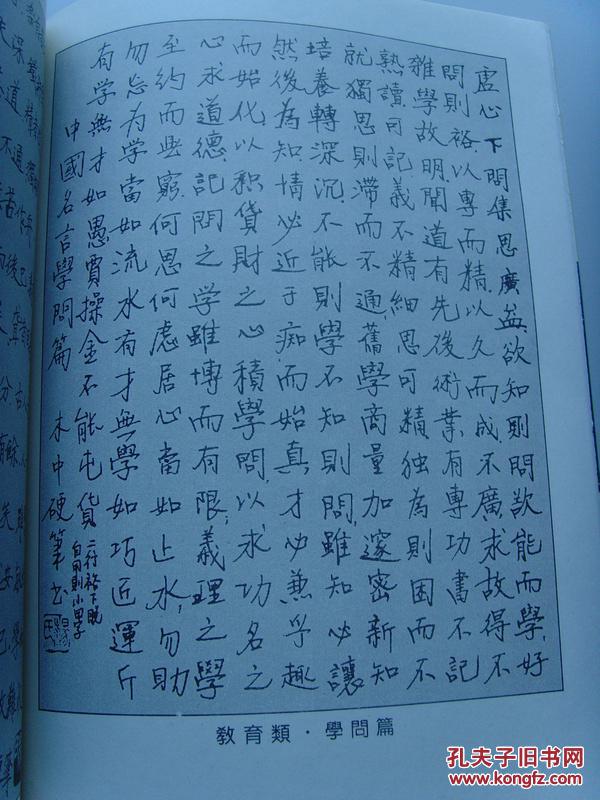 虛心下問集思廣益,欲知則問欲能而學,好
問則裕,以專而精,以久而成,不廣求故得,不
雜學故明,聞道有先後術業有專功書不記
熟讀可記,義不精細思可精独為則困而不
就獨思則滞而不通,舊學商量加邃密新知
培養轉深沉,不能則學不知則問,雖知必讓
然後為知,情必近于痴而始真,才必兼乎趣
而始化,以积貨財之心積學問,以求功名之
心求道德,記問之学雖博而有限,義理之學
至約而無窮,何思何慮居心當如止水,勿助
勿忘为学當如流水有才無學如巧近運斤
有学無才如愚賈操金不能屯货
二行裕下脱
自用則小四字
中國名言學問篇 木中硬筆书
教育類·學問篇
孔夫子旧书网
www.kongfz.com